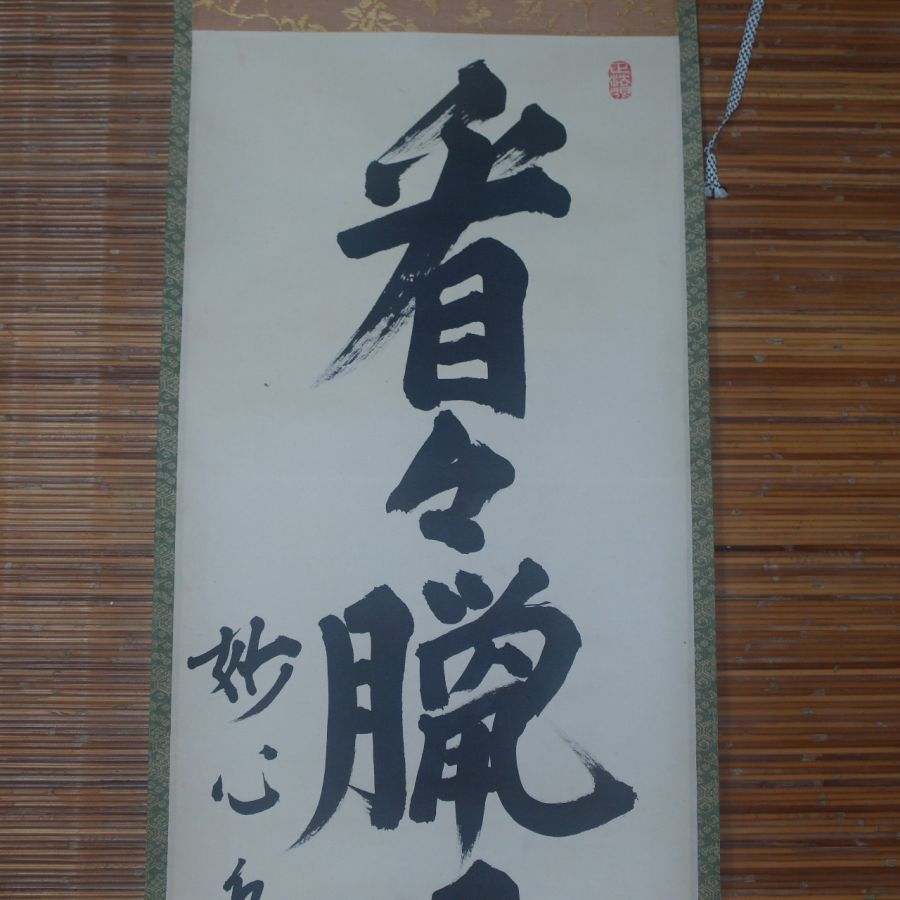 看々臘
妙心